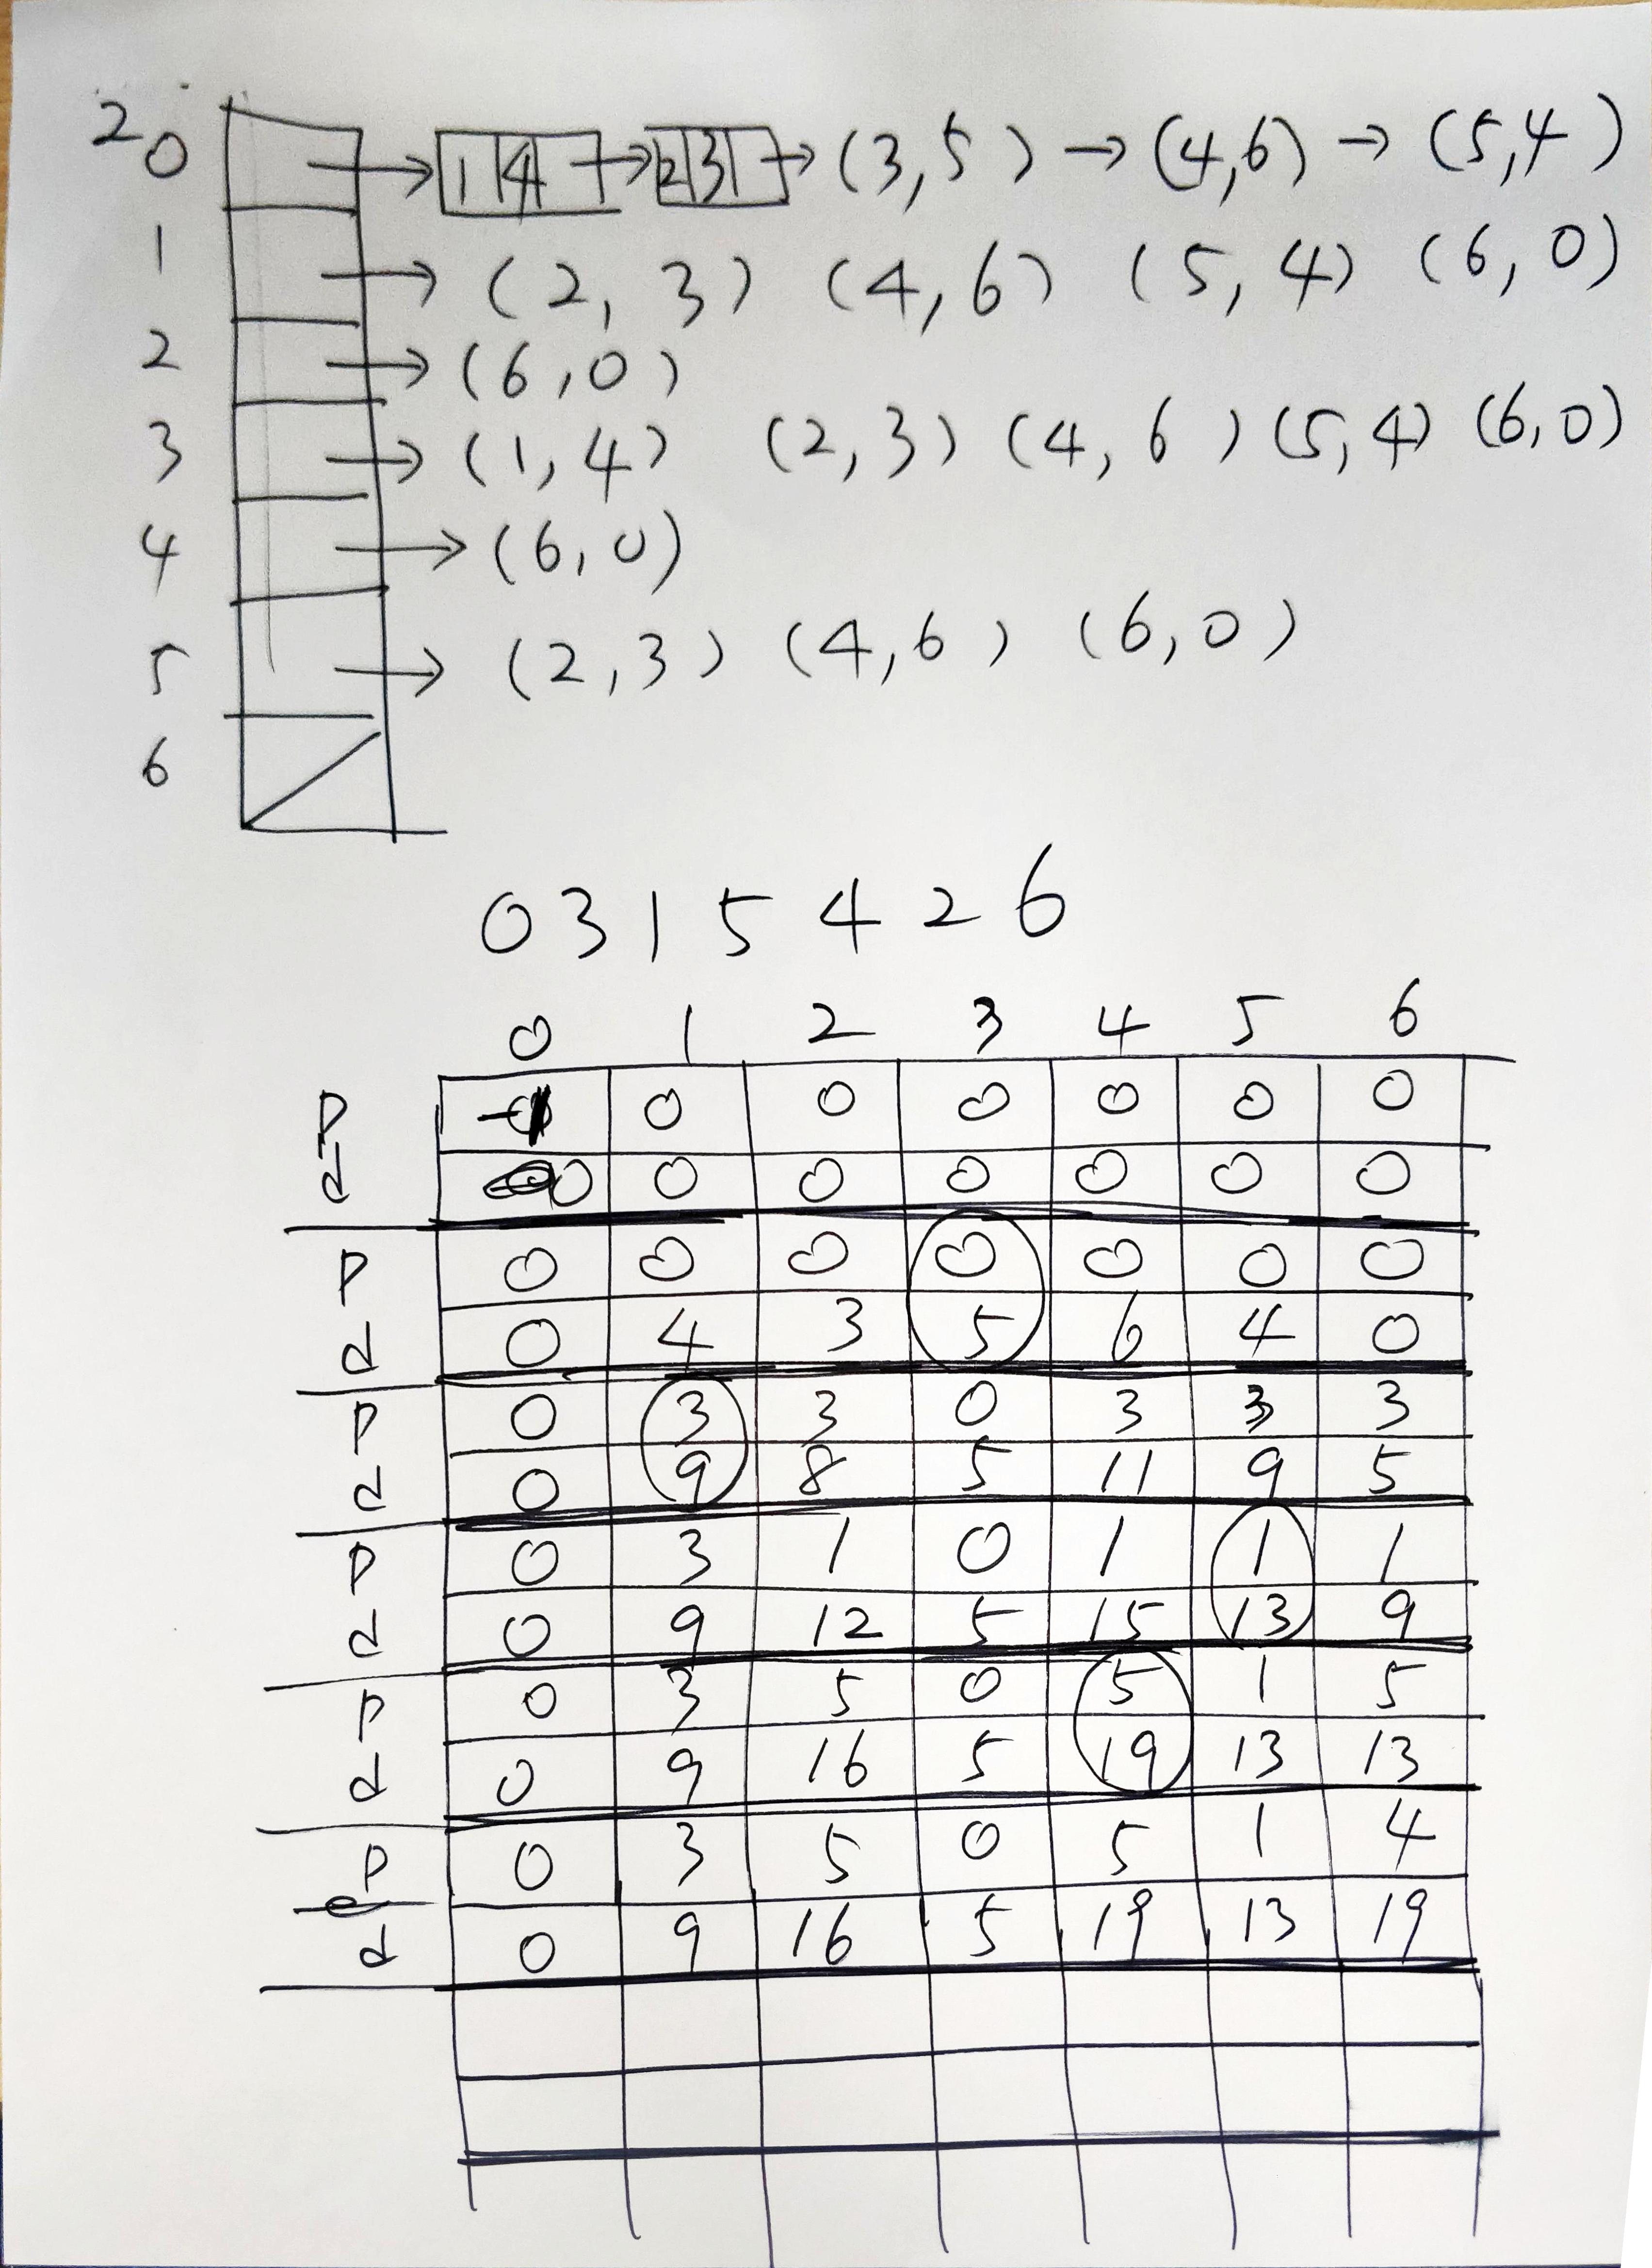 20 → 1 4 → 2 3 → (3,5) → (4,6) → (5,4)
1 → (2,3) (4,6) (5,4) (6,0)
2 → (6,0)
3 → (1,4) (2,3) (4,6) (5,4) (6,0)
4 → (6,0)
5 → (2,3) (4,6) (6,0)
6
0 3 1 5 4 2 6
0 1 2 3 4 5 6
P -1 0 0 0 0 0 0
d 0 0 0 0 0 0 0
P 0 0 0 0 0 0 0
d 0 4 3 5 6 4 0
P 0 3 3 0 3 3 3
d 0 9 8 5 11 9 5
P 0 3 1 0 1 1 1
d 0 9 12 5 15 13 9
P 0 3 5 0 5 1 5
d 0 9 16 5 19 13 13
P 0 3 5 0 5 1 4
d 0 9 16 5 19 13 19